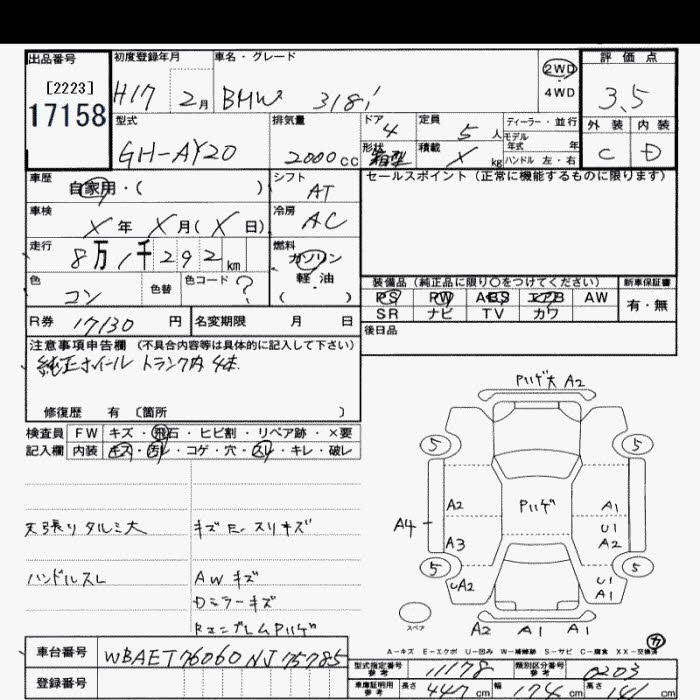 出品番号 初度登録年月 車名・グレード 評価点
[2223] H17 2月 BMW 318i 2WD 3.5
17158 4WD
型式 排気量 ドア 定員 ディーラー・並行 外装 内装
GH-AY20 2000cc 4 5人 モデル年式 年 C D
形状 積載 ハンドル 左・右
箱型 X kg
車歴 シフト セールスポイント(正常に機能するものに限ります)
自家用・( ) AT
車検 冷房
X年 X月(X日) AC
走行 燃料
8万1千292km ガソリン
色 色替 色コード 軽・油 装備品(純正品に限り〇をつけてください) 新車保証書
コン ? ( ) PS PW ABS エアB AW 有・無
R券 17130円 名変期限 月 日 SR ナビ TV カワ
注意事項申告欄(不具合内容等は具体的に記入して下さい) 後日品
純正ホイール トランク内 4本
修復歴 有〔箇所 〕
検査員 FW キズ・飛石・ヒビ割・リペア跡・×要
記入欄 内装 キズ・汚レ・コゲ・穴・スレ・キレ・破レ
Pハゲ大 A2
5 5
Pハゲ
A2 A1
A4 U1
A3 A2
5 5
UA2 U1
A1
スペア
A2 A1 A1
天張りタルミ大 キズ E、スリキズ
ハンドルスレ AWキズ
Dミラーキズ
RエンブレムPハゲ
A-キズ E-エクボ U-凹み W-補修跡 S-サビ C-腐食 XX-交換済
カ
車台番号 WBAET76060NJ75785 型式指定番号 参考 11178 類別区分番号 参考 0203
登録番号 車庫証明用 参考 長さ 447cm 幅 174cm 高さ 141cm